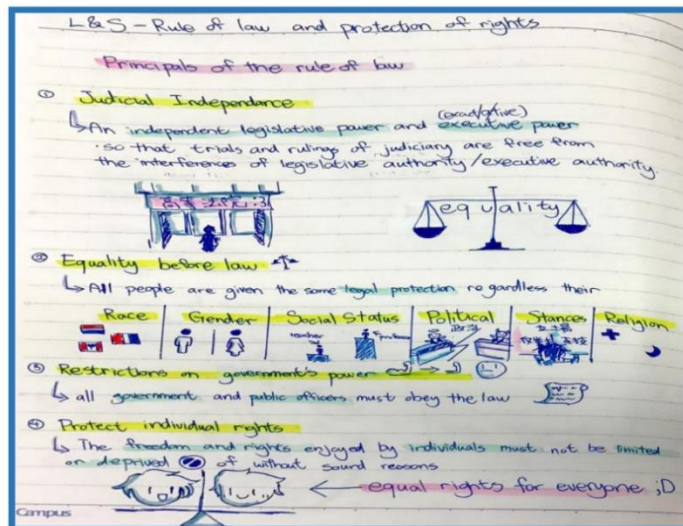 L&S - Rule of law and protection of rights
Principals of the rule of law
① Judicial Independance
↳ An independent legislative power and executive power
so that trials and rulings of judiciary are free from
the interference of legislative authority/executive authority.
:3
equality
② Equality before law
↳ All people are given the same legal protection regardless their
Race Gender Social Status Political Stances Religion
政治
③ Restrictions on government's power
↳ all government and public officers must obey the law
④ Protect individual rights
↳ The freedom and rights enjoyed by individuals must not be limited
or deprived of without sound reasons
equal rights for everyone ;D
Campus